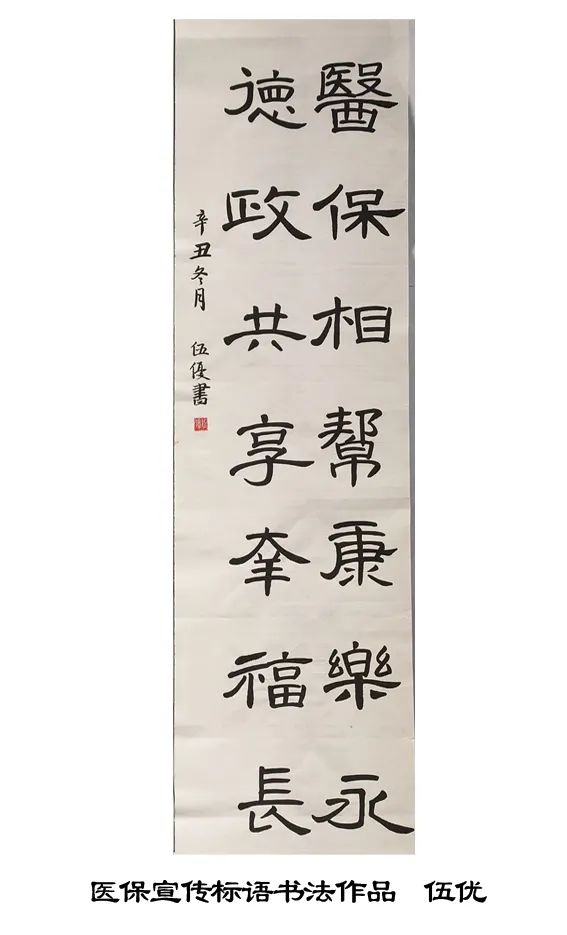 醫保相幫康樂永
德政共享幸福長
辛丑冬月 伍優書
医保宣传标语书法作品 伍优